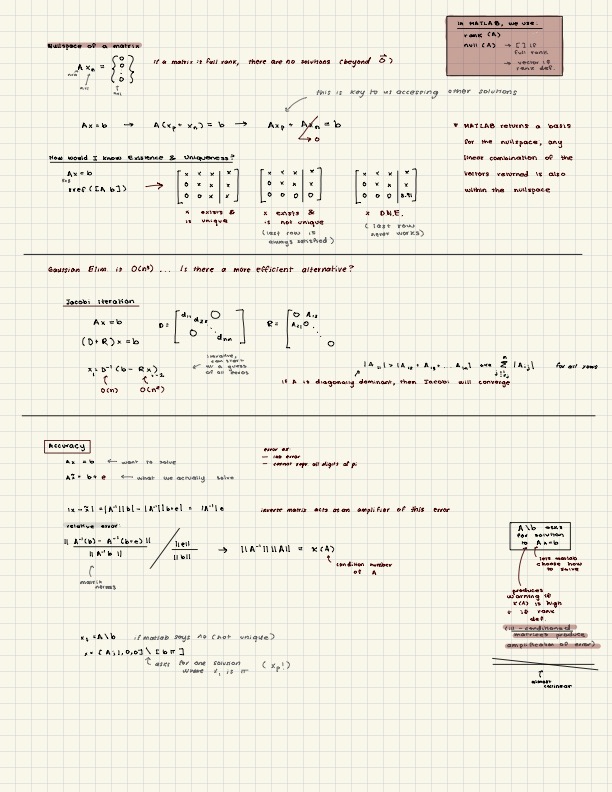 In MATLAB, we use:
rank (A)
null (A) → [] if
full rank
→ vector if
rank def.
Nullspace of a matrix
A xₙ = { 0 0 : 0 }
if a matrix is full rank, there are no solutions (beyond 0⃗)
this is key to us accessing other solutions
Ax = b → A(xₚ + xₙ) = b → Axₚ + Axₙ = b
→ 0
* MATLAB returns a basis
for the nullspace, any
linear combination of the
vectors returned is also
within the nullspace
How would I know Existence & Uniqueness?
Ax = b
rref ([A b]) →
x x x | x
0 x x | x
0 0 x | x
x x x | x
0 x x | x
0 0 0 | 0
x exists &
is unique
x exists &
is not unique
(last row is
always satisfied)
x D.N.E.
(last row
never works)
Gaussian Elim. is O(n³) ... Is there a more efficient alternative?
Jacobi Iteration
Ax = b
D = [ d₁₁ d₂₂ 0 0 ⋱ dₙₙ ]
R = [ 0 A₁₂ A₂₁ 0 ⋱ 0 ]
(D+R) x = b
x = D⁻¹ (b - Rx)
O(n) O(n²)
iterative,
can start
as a guess
of all zeros
for all rows
if A is diagonaly dominant, then Jacobi will converge
Accuracy
Ax = b ← want to solve
Ax̃ = b + e ← what we actually solve
error as
— lab error
— cannot repr all digits of pi
|x - x̃| = |A⁻¹||b| - |A⁻¹||b+e| = |A⁻¹| e
inverse matrix acts as an amplifier of this error
relative error:
|| A⁻¹(b) - A⁻¹(b+e) ||
|| A⁻¹ b ||
||e||
||b||
→ ||A⁻¹|| ||A|| = κ(A)
condition number
of A
matrix
norms
A\b asks
for solution
to Ax=b
lets matlab
choose how
to solve
produces
warning if
κ(A) is high
or if rank
def.
(ill-conditioned
matrices produce
amplification of error)
almost
collinear
x₁ = A\b if matlab says no (not unique)
x = [A; 1,0,0] \ [b π]
asks for one solution
where x₁ is π (xₚ!)